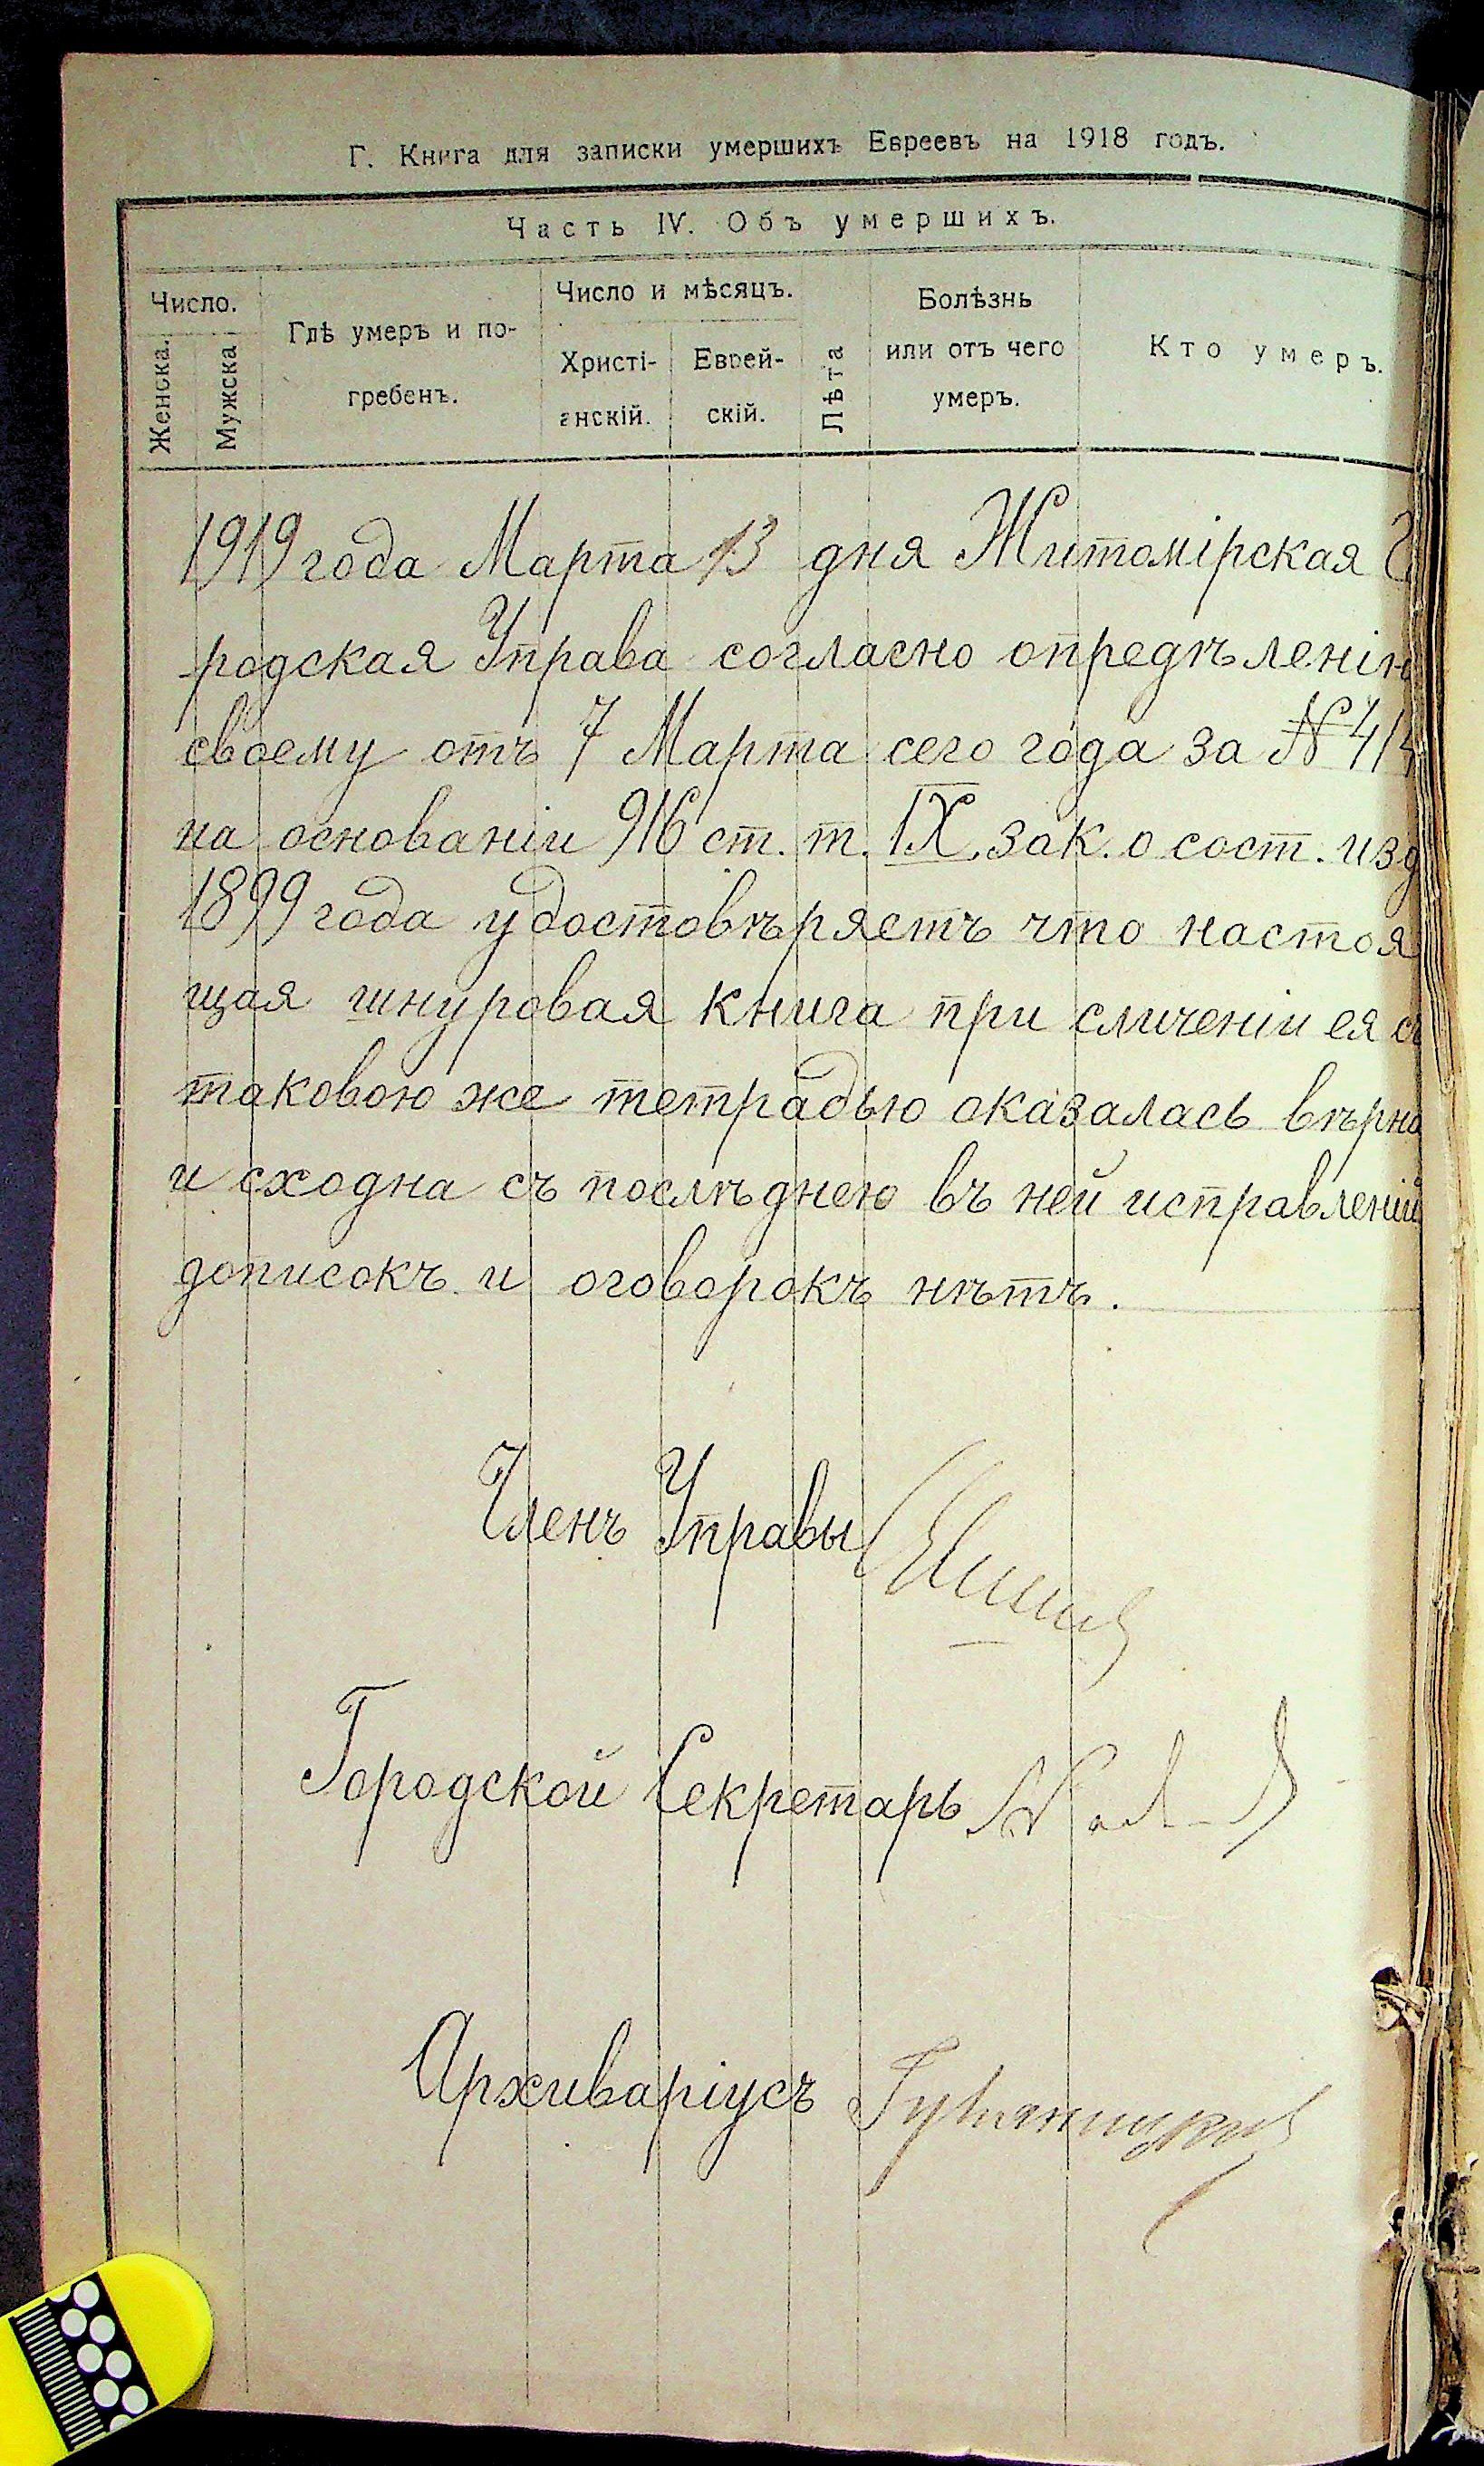 Г. Книга для записки умершихъ Евреевъ на 1918 годъ.
Часть IV. Объ умершихъ.
Число.
Женска.
Мужска
Гдѣ умеръ и по-
гребенъ.
Число и мѣсяцъ.
Христі-
анскій.
Еврей-
скій.
Лѣта
Болѣзнь
или отъ чего
умеръ.
Кто умеръ.
1919 года Марта 13 дня Житомірская
родская Управа согласно опредѣленію
своему отъ 7 Марта сего года за №
на основаніи 916 ст. т. IX зак. о сост. изд
1899 года удостовѣряетъ что настоя
щая шнуровая книга при сличеніи ея съ
таковою же тетрадью оказалась вѣрна
и сходна съ послѣднею въ ней исправленій
дописокъ и оговорокъ нѣтъ.
Членъ Управы
Городской Секретарь
Архиваріусъ